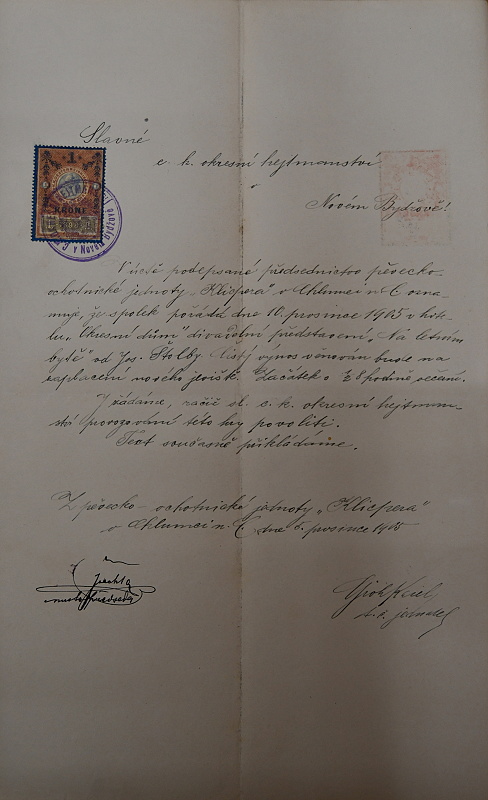 Slavné
c. k. okresní hejtmanství
v
Novém Bydžově!
1
KRONE
V úctě podepsané předsednictvo pěvecko-
ochotnické jednoty „Klicpera" v Chlumci n. C. ozna-
muje, že spolek pořádá dne 10. prosince 1905 v hote-
lu „Okresní dům" divadelní představení „Na letním
bytě" od Jos. Štolby. Čistý výnos věnován bude na
zaplacení nového jeviště. Začátek o ½ 8 hodině večerní.
Žádáme, račiž sl. c. k. okresní hejtman-
ství provozování této hry povoliti.
Text současně přikládáme.
Z pěvecko-ochotnické jednoty „Klicpera"
v Chlumci n. C. dne 5. prosince 1905
t. č. jednatel